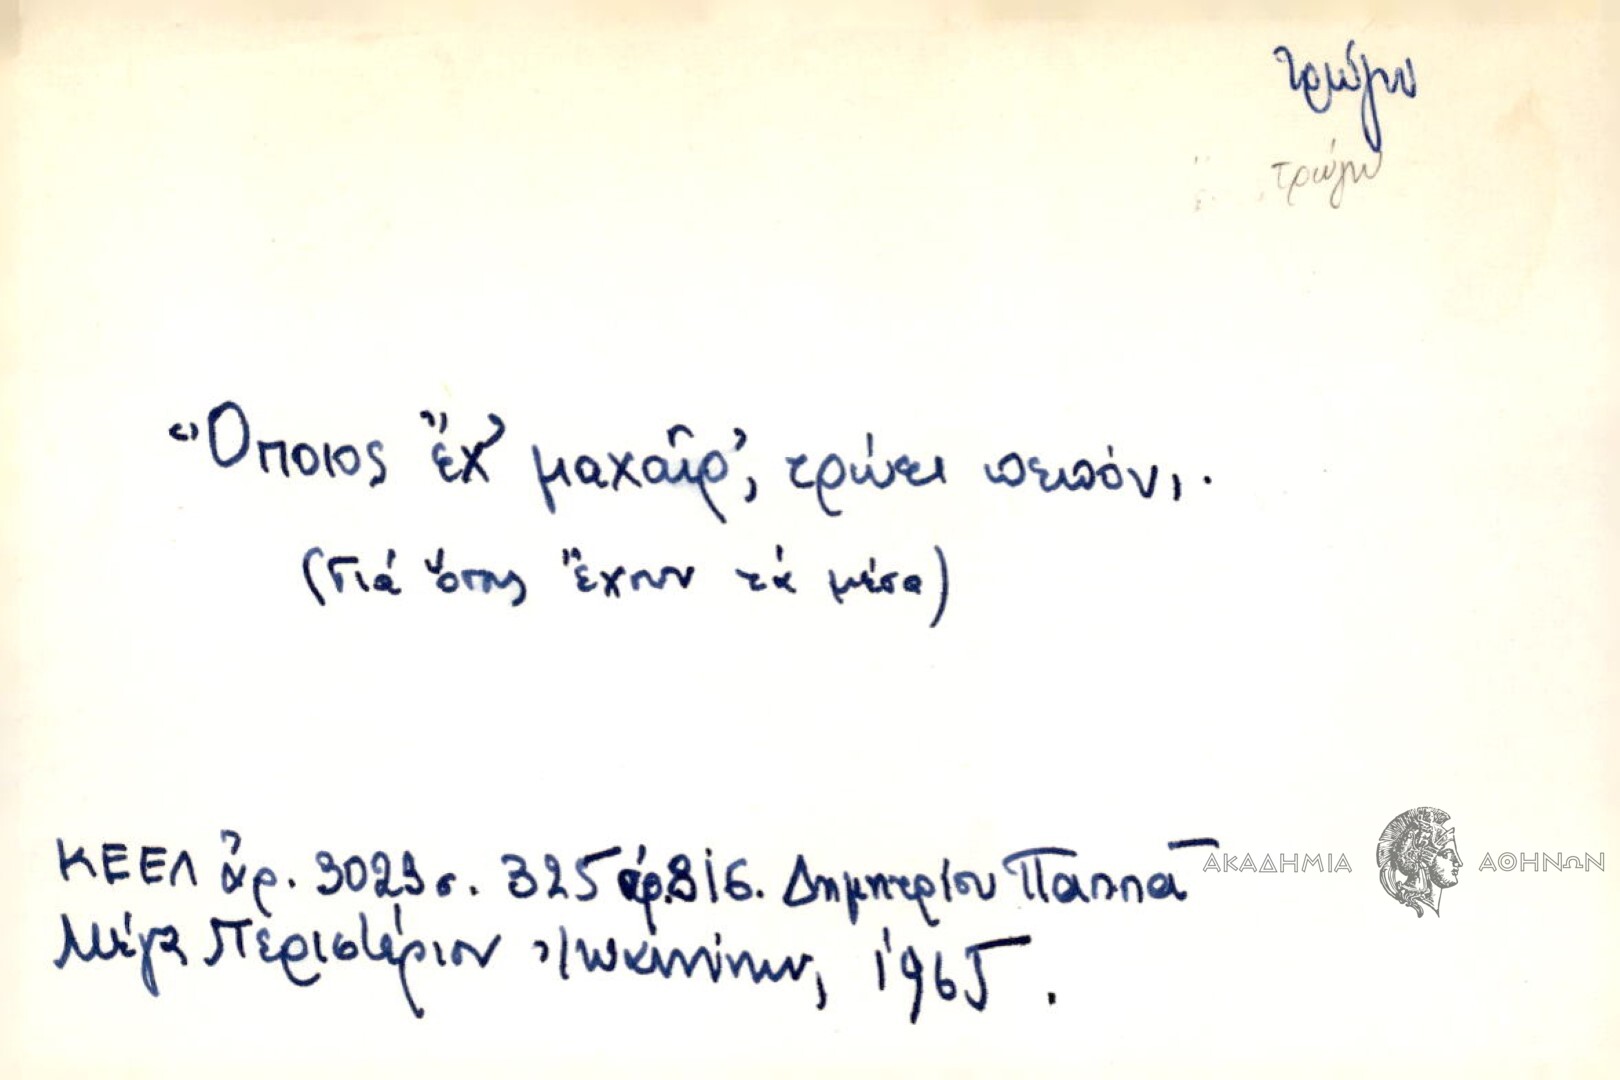 τρώγω
τρώγω
Ὅποιος ἔχ' μαχαῖρ', τρώει πεπόν,.
(Γιά ὅσους ἔχουν τά μέσα)
ΚΕΕΛ ἀρ. 3023 σ. 325 ἀρ. 816. Δημητρίου Παππᾶ
Μέγα Περιστέριον Ἰωαννίνων, 1965.
ΑΚΑΔΗΜΙΑ ΑΘΗΝΩΝ